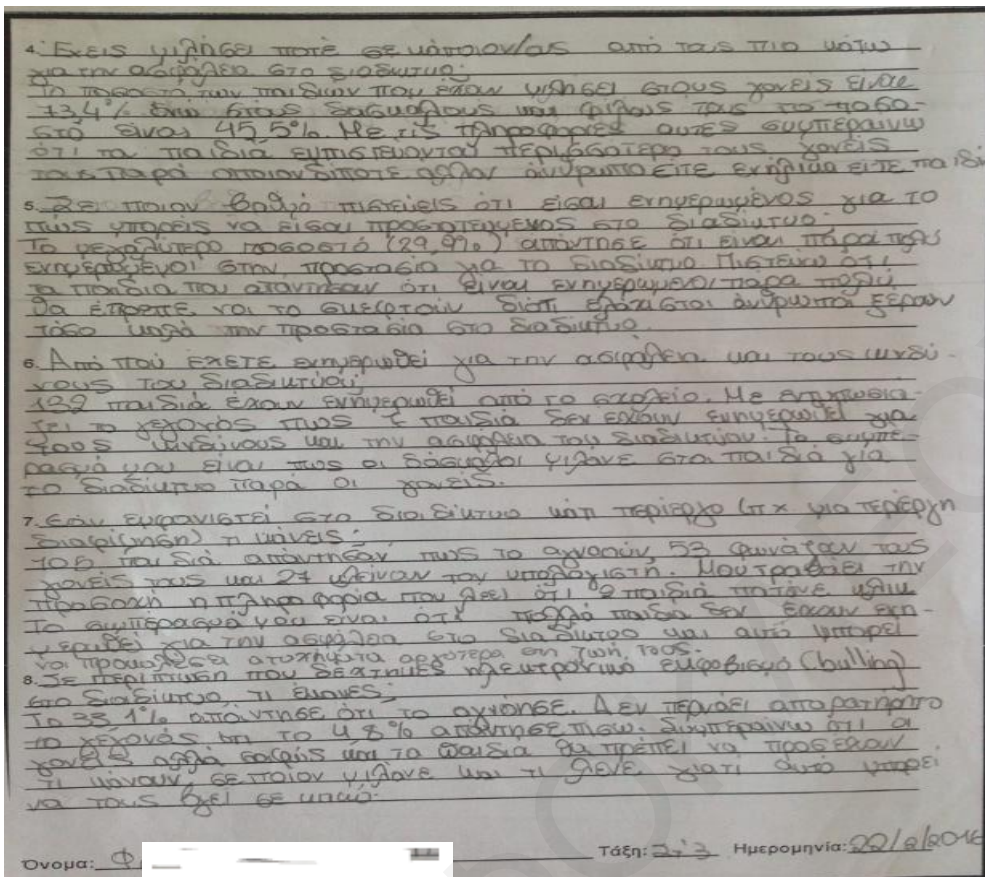 4. Έχεις μιλήσει ποτέ σε κάποιον/ας από τους πιο κάτω
για την ασφάλεια στο διαδίκτυο;
Το ποσοστό των παιδιών που έχουν μιλήσει στους γονείς είναι
73,4% ενώ στους δασκάλους και φίλους τους το ποσο-
στό είναι 45,5%. Με τις πληροφορίες αυτές συμπεραίνω
ότι τα παιδιά εμπιστεύονται περισσότερο τους γονείς
τους παρά οποιονδήποτε άλλον άνθρωπο είτε ενήλικα είτε παιδί
5. Σε ποιον βαθμό πιστεύεις ότι είσαι ενημερωμένος για το
πως μπορείς να είσαι προστατευμένος στο διαδίκτυο.
Το μεγαλύτερο ποσοστό (29,9%) απάντησε ότι είναι πάρα πολύ
ενημερωμένοι στην προστασία για το διαδίκτυο. Πιστεύω ότι
τα παιδιά που απάντησαν ότι είναι ενημερωμένοι πάρα πολύ
θα έπρεπε να το σκεφτούν διότι ελάχιστοι άνθρωποι ξέρουν
τόσο καλά την προστασία στο διαδίκτυο.
6. Από πού έχετε ενημερωθεί για την ασφάλεια και τους κινδύ-
νους του διαδικτύου;
122 παιδιά έχουν ενημερωθεί από το σχολείο. Με εντυπωσιά-
ζει το γεγονός πως παιδιά δεν έχουν ενημερωθεί για
τους κινδύνους και την ασφάλεια του διαδικτύου. Το συμπέ-
ρασμά μου είναι πως οι δάσκαλοι μιλάνε στα παιδιά για
το διαδίκτυο παρά οι γονείς.
7. Εάν εμφανιστεί στο διαδίκτυο κάτι περίεργο (π.χ μια περίεργη
διαφήμηση) τι κάνεις;
106 παιδιά απάντησαν πως το αγνοούν, 53 φωνάζουν τους
γονείς τους και 27 κλείναν τον υπολογιστή. Μου τραβάει την
προσοχή η πληροφορία που λέει ότι 9 παιδιά πατάνε κλικ
Το συμπέρασμά μου είναι ότι πολλά παιδιά δεν έχουν ενη-
μερωθεί για την ασφάλεια στο διαδίκτυο και αυτό μπορεί
να προκαλέσει ατυχήματα αργότερα στη ζωή τους.
8. Σε περίπτωση που δέχτηκες ηλεκτρονικό εκφοβισμό (bulling)
στο διαδίκτυο τι έκανες;
Το 33,1% απάντησε ότι το αγνόησε. Δεν περνάει απαρατήρητο
το γεγονός ότι το 4,8% απάντησε πίσω. Συμπεραίνω ότι οι
γονείς αλλά σαφώς και τα παιδιά θα πρέπει να προσέχουν
τι κάνουν, σε ποιον μιλάνε και τι λένε γιατί αυτό μπορεί
να τους βγει σε κακό.
Όνομα: Φ Τάξη: Στ'3 Ημερομηνία: 22/2/2016